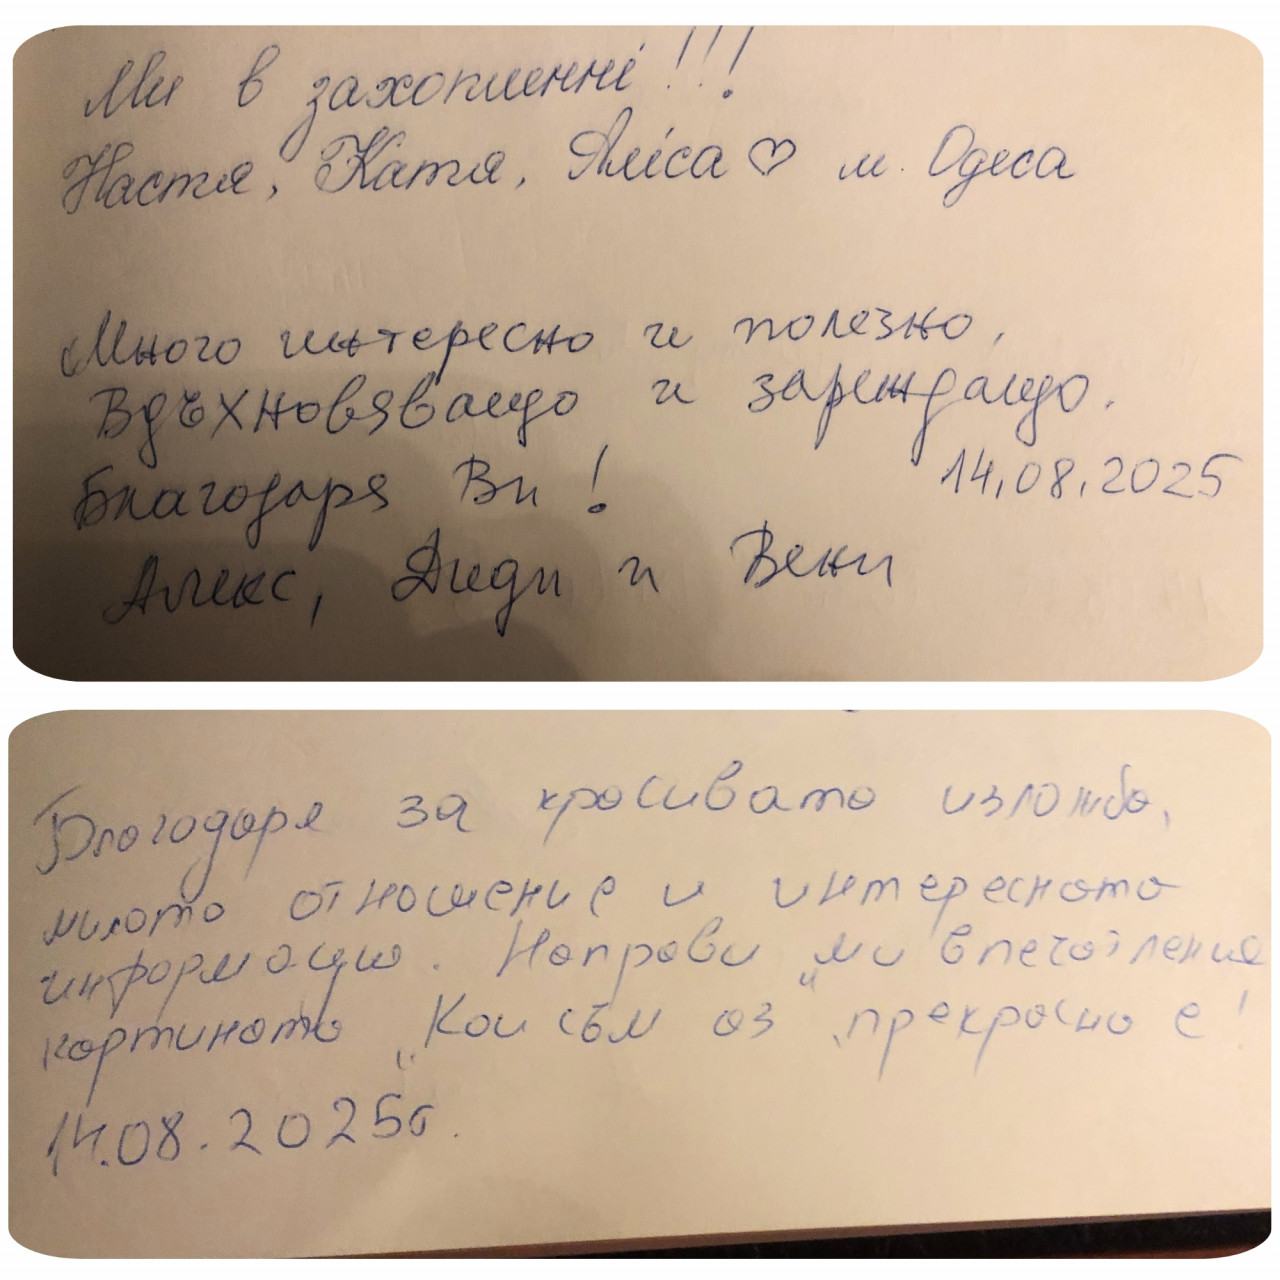 Ми в захопленні!!!
Настя, Катя, Аліса ♡ м. Одеса
Много интересно и полезно,
Вдъхновяващо и зареждащо.
Благодаря Ви!
14.08.2025
Алекс, Диди и Вени
Благодаря за красивата изложба,
милото отношение и интересната
информация. Направи ми впечатления
картината "Кои съм аз", прекрасно е!
14.08.2025г.